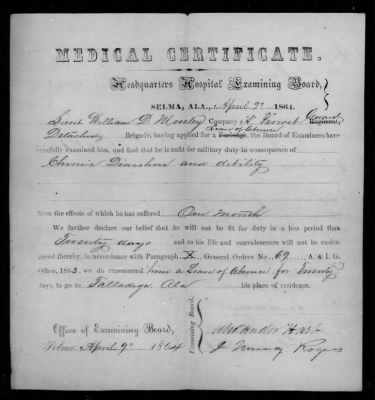 MEDICAL CERTIFICATE.
Headquarters Hospital Examining Board,
SELMA, ALA., April 9th 1864.
Lieut William D. Moseley Company A. Provost Guard
Regiment,
Detached Brigade, having applied for a Leave of Absence Furlough, the Board of Examiners have
carefully examined him, and find that he is unfit for military duty in consequence of
Chronic Diarrhoea and debility
from the effects of which he has suffered One Month
We further declare our belief that he will not be fit for duty in a less period than
Twenty days and as his life and convalescence will not be endangered thereby, in accordance with Paragraph General Orders No. 69 A. & I. G.
Office, 1863, we do recommend him a Leave of Absence for Twenty
days, to go to Talladega Ala his place of residence.
Office of Examining Board,
Selma April 9th 1864
Examining Board.
Alexander Hart
J Murray Rogers